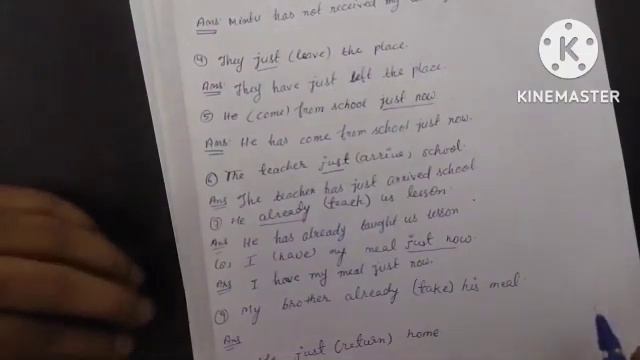 Ans: Mintu has not received my
④ They just (leave) the place.
Ans: They have just left the place.
⑤ He (come) from school just now
Ans: He has come from school just now.
⑥ The teacher just (arrive) school.
Ans The teacher has just arrived school
⑦ He already (teach) us lesson.
Ans He has already taught us lesson
I (have) my meal just now.
Ans I have my meal just now.
⑨ My brother already (take) his meal.
Ans
just (return) home
KINEMASTER